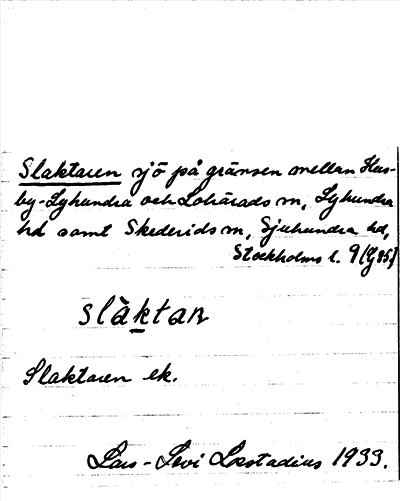 Slaktaren sjö på gränsen mellan Hus-
by-Lyhundra och Lohärads sn, Lyhundra
hd samt Skederids sn, Sjuhundra hd,
Stockholms l. 9
slàktan
Slaktaren ek.
Lars-Levi Læstadius 1933.